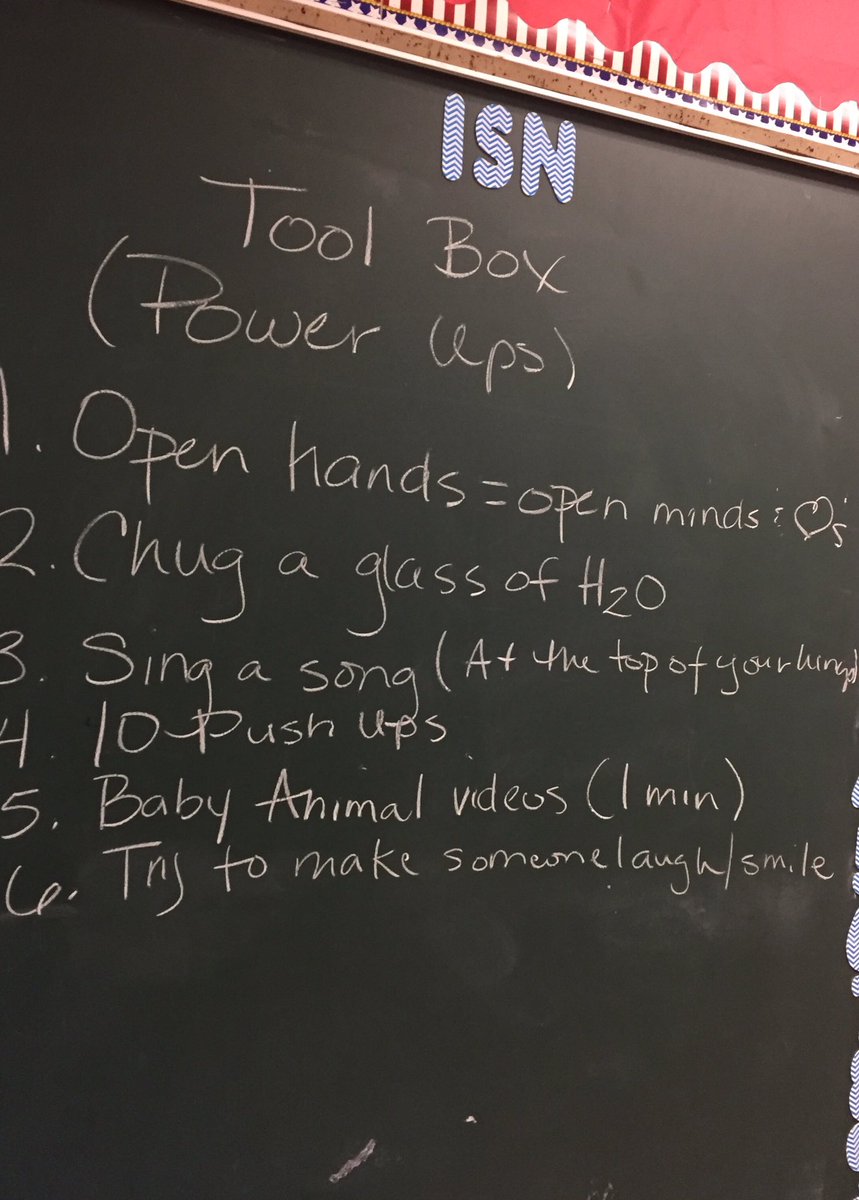 ISN
Tool Box
(Power Ups)
1. Open hands = open minds & ♡'s
2. Chug a glass of H₂O
3. Sing a song (At the top of your lungs)
4. 10 Push ups
5. Baby Animal videos (1 min)
6. Try to make someone laugh/smile